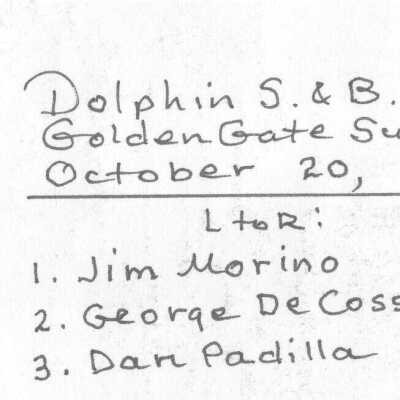 Dolphin S. & B.
Golden Gate Su
October 20,
L to R:
1. Jim Morino
2. George De Coss
3. Dan Padilla